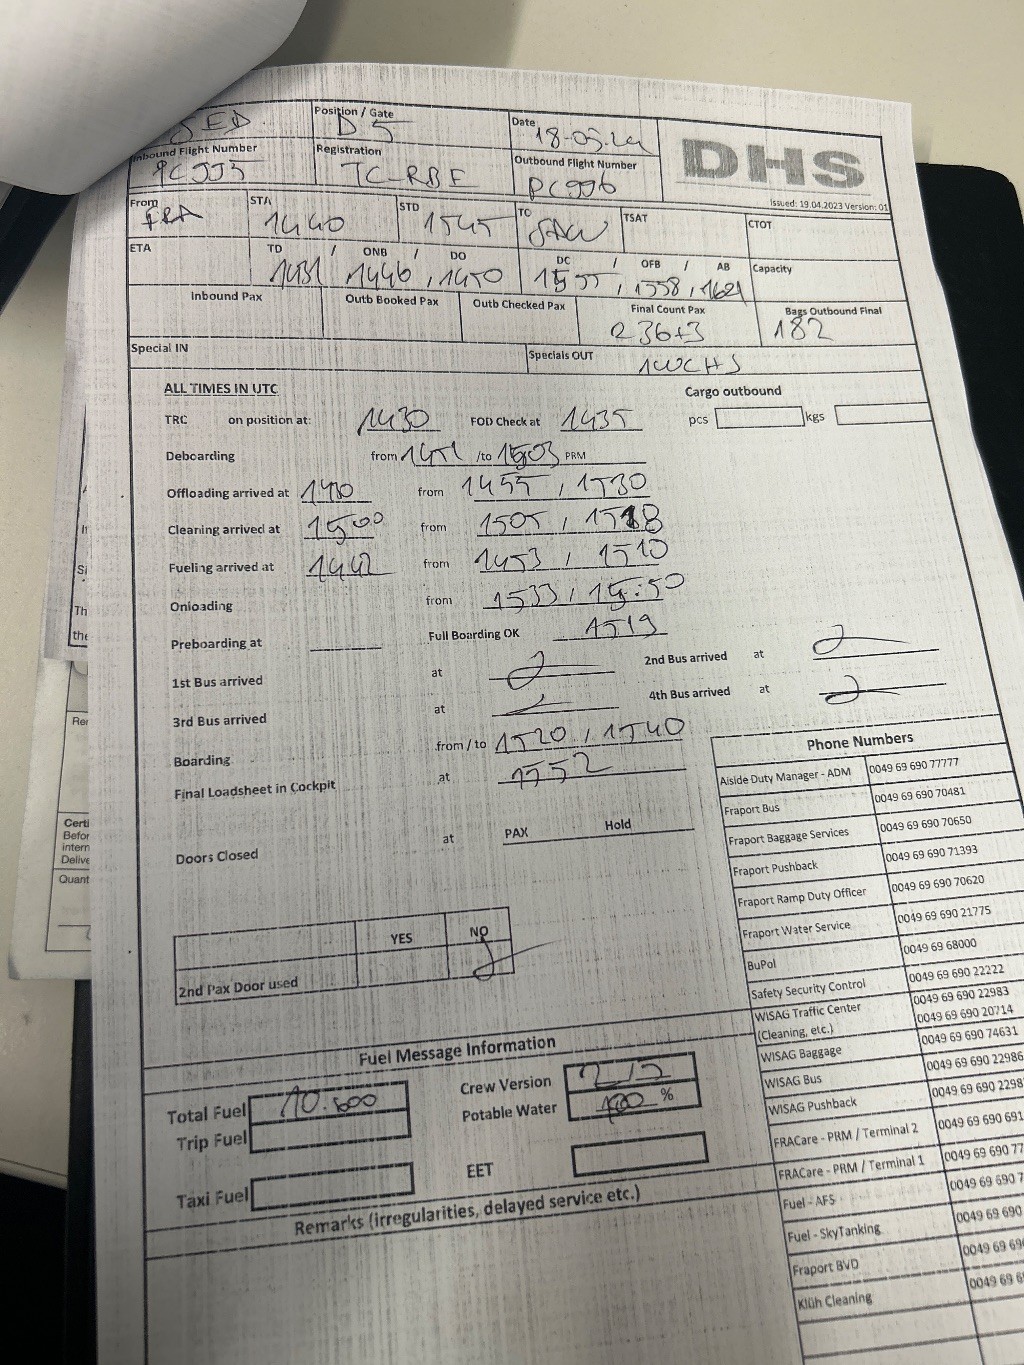 Position / Gate
D5
Date
DHS
Inbound Flight Number
PC995
Registration
TC-RBE
Outbound Flight Number
PC996
Issued: 19.04.2023 Version: 01
From
FRA
STA
1440
STD
1545
TO
SAW
TSAT
CTOT
ETA
TD / ONB / DO
1431 1446, 1450
DC / OFB / AB
1555, 1558, 1621
Capacity
Inbound Pax
Outb Booked Pax
Outb Checked Pax
Final Count Pax
236+3
Bags Outbound Final
182
Special IN
Specials OUT
1WCHS
ALL TIMES IN UTC
Cargo outbound
TRC on position at: 1430 FOD Check at 1435 pcs kgs
Deboarding from 1451 /to 1503 PRM
Offloading arrived at from 1455, 1530
Cleaning arrived at 1500 from 1505, 1518
Fueling arrived at 1442 from 1453, 1510
Onloading from 1533, 15:50
Preboarding at Full Boarding OK 1519
1st Bus arrived at 2nd Bus arrived at
3rd Bus arrived at 4th Bus arrived at
Boarding from / to 1520, 1540
Final Loadsheet in Cockpit at 1552
Doors Closed at PAX Hold
YES NO
2nd Pax Door used
Phone Numbers
Aiside Duty Manager - ADM 0049 69 690 77777
Fraport Bus 0049 69 690 70481
Fraport Baggage Services 0049 69 690 70650
Fraport Pushback 0049 69 690 71393
Fraport Ramp Duty Officer 0049 69 690 70620
Fraport Water Service 0049 69 690 21775
BuPol 0049 69 68000
Safety Security Control 0049 69 690 22222
WISAG Traffic Center 0049 69 690 22983
(Cleaning, etc.) 0049 69 690 20714
WISAG Baggage 0049 69 690 74631
WISAG Bus 0049 69 690 22986
WISAG Pushback 0049 69 690 2298
FRACare - PRM / Terminal 2 0049 69 690 691
FRACare - PRM / Terminal 1 0049 69 690 77
Fuel - AFS 0049 69 690 7
Fuel - SkyTanking 0049 69 690
Fraport BVD 0049 69 69
Klüh Cleaning 0049 69 6
Fuel Message Information
Total Fuel 10.600 Crew Version 2/5
Trip Fuel Potable Water 100 %
Taxi Fuel EET
Remarks (irregularities, delayed service etc.)
Th
the
Rer
Certi
Befor
intern
Delive
Quant